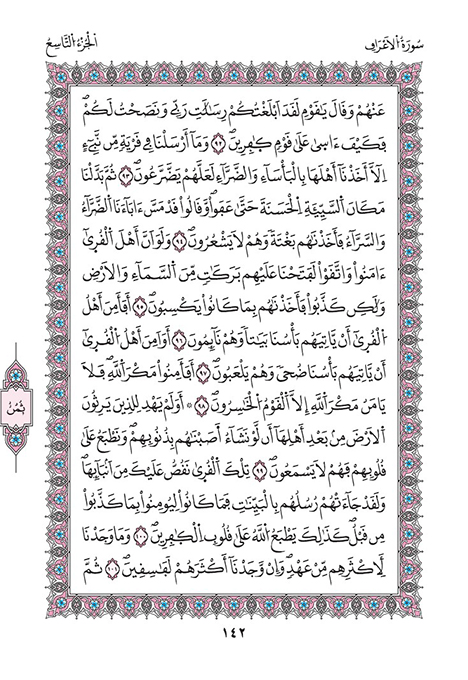 سُورَةُ الْاَعْرَافِ
الْجُزْءُ التَّاسِعُ
عَنْهُمْ وَقَالَ يَٰقَوْمِ لَقَدَ اَبْلَغْتُكُمْ رِسَٰلَٰتِ رَبِّے وَنَصَحْتُ لَكُمْۖ
فَكَيْفَ ءَاسِيٰ عَلَىٰ قَوْمٖ كٰفِرِينَۖ ٩٢ وَمَآ أَرْسَلْنَا فِے قَرْيَةٖ مِّن نَّبِےٓءٍ
اِلَّآ أَخَذْنَآ أَهْلَهَا بِالْبَأْسَآءِ وَالضَّرَّآءِ لَعَلَّهُمْ يَضَّرَّعُونَۖ ٩٣ ثُمَّ بَدَّلْنَا
مَكَانَ اَلسَّيِّئَةِ اِلْحَسَنَةَ حَتَّىٰ عَفَواْ وَّقَالُواْ قَدْ مَسَّ ءَابَآءَنَا اَلضَّرَّآءُ
وَالسَّرَّآءُ فَأَخَذْنَٰهُم بَغْتَةٗ وَهُمْ لَا يَشْعُرُونَۖ ٩٤ وَلَوَ اَنَّ أَهْلَ اَلْقُرَىٰٓ
ءَامَنُواْ وَاتَّقَوْاْ لَفَتَحْنَا عَلَيْهِم بَرَكَٰتٖ مِّنَ اَلسَّمَآءِ وَالَارْضِ
وَلَٰكِن كَذَّبُواْ فَأَخَذْنَٰهُم بِمَا كَانُواْ يَكْسِبُونَۖ ٩٥ أَفَأَمِنَ أَهْلُ
اُلْقُرَىٰٓ أَنْ يَّاتِيَهُم بَأْسُنَا بَيَٰتاٗ وَهُمْ نَآئِمُونَۖ ٩٦ أَوَ اَمِنَ أَهْلُ اُلْقُرَىٰٓ
أَنْ يَّاتِيَهُم بَأْسُنَا ضُحىٗ وَهُمْ يَلْعَبُونَۖ ٩٧ أَفَأَمِنُواْ مَكْرَ اَللَّهِۖ فَلَا
يَامَنُ مَكْرَ اَللَّهِ إِلَّا اَلْقَوْمُ اُلْخَٰسِرُونَۖ ٩٨ ۞ أَوَلَمْ يَهْدِ لِلذِينَ يَرِثُونَ
اَلَارْضَ مِنۢ بَعْدِ أَهْلِهَآ أَن لَّوْ نَشَآءُ اَصَبْنَٰهُم بِذُنُوبِهِمْۖ وَنَطْبَعُ عَلَىٰ
قُلُوبِهِمْ فَهُمْ لَا يَسْمَعُونَۖ ٩٩ تِلْكَ اَلْقُرَىٰ نَقُصُّ عَلَيْكَ مِنَ اَنۢبَآئِهَاۖ
وَلَقَدْ جَآءَتْهُمْ رُسُلُهُم بِالْبَيِّنَٰتِ فَمَا كَانُواْ لِيُومِنُواْ بِمَا كَذَّبُواْ
مِن قَبْلُۖ كَذَٰلِكَ يَطْبَعُ اُللَّهُ عَلَىٰ قُلُوبِ اِلْكٰفِرِينَۖ ١٠٠ وَمَا وَجَدْنَا
لِأَكْثَرِهِم مِّنْ عَهْدٖۖ وَإِنْ وَّجَدْنَآ أَكْثَرَهُمْ لَفَٰسِقِينَۖ ١٠١ ثُمَّ
ثُمُنُ
١٤٢